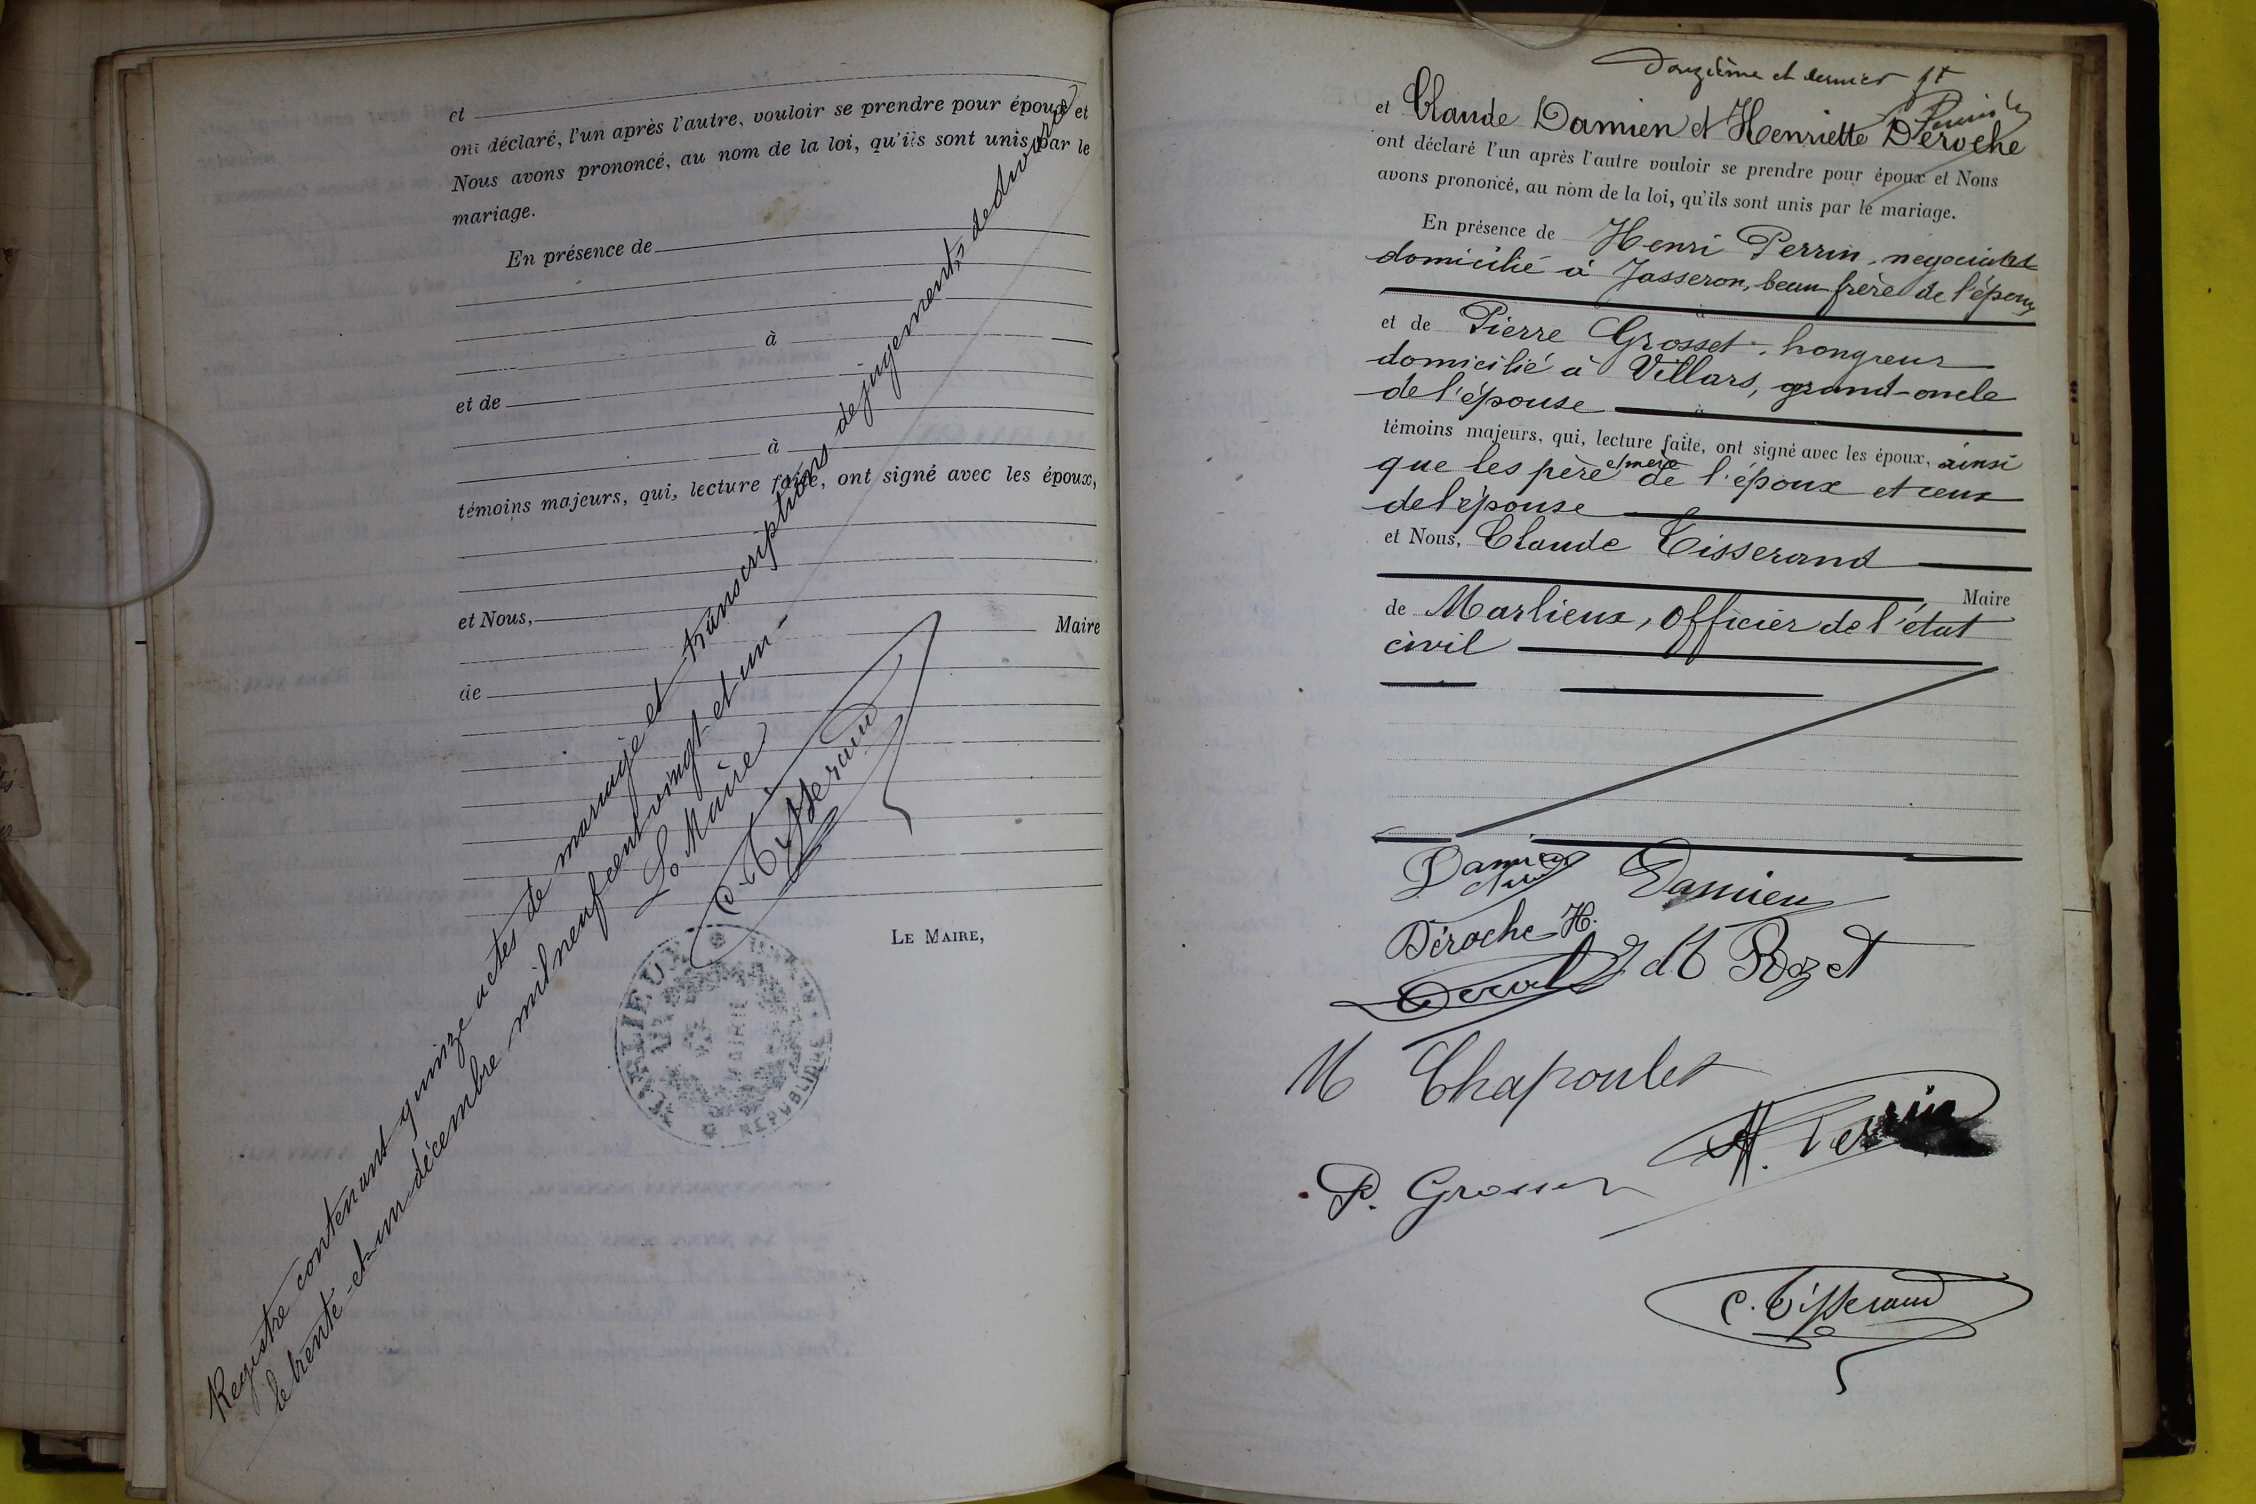 et
ont déclaré, l'un après l'autre, vouloir se prendre pour époux et
Nous avons prononcé, au nom de la loi, qu'ils sont unis par le
mariage.
En présence de
à
et de
à
témoins majeurs, qui, lecture faite, ont signé avec les époux,
et Nous,
Maire
de
LE MAIRE,
Registre contenant quinze actes de mariage et transcriptions de jugements de divorce
le trente-et-un décembre mil neuf cent vingt et un -
Le Maire
C. Tisserand
MARLIEUX
MAIRIE
RÉPUBLIQUE
Douzième et dernier ft
et Claude Damien et Henriette Déroche
ont déclaré l'un après l'autre vouloir se prendre pour époux et Nous
avons prononcé, au nom de la loi, qu'ils sont unis par le mariage.
En présence de Henri Perrin, négociant
domicilié à Jasseron, beau-frère de l'époux
et de Pierre Grosset, hongreur
domicilié à Villars, grand-oncle
de l'épouse
témoins majeurs, qui, lecture faite, ont signé avec les époux, ainsi
que les père et mère de l'époux et ceux
de l'épouse
et Nous, Claude Tisserand
Maire
de Marlieux, officier de l'état
civil
Damien
Damien
Déroche H.
Rozet
M Chapoulet
H. Perrin
P. Grosset
C. Tisserand